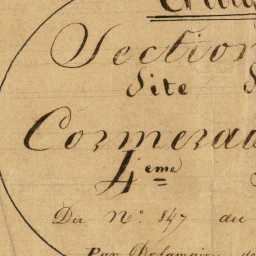 Section
Site
Cormerau
4eme
Du N° 147 au
Par Delamaire de